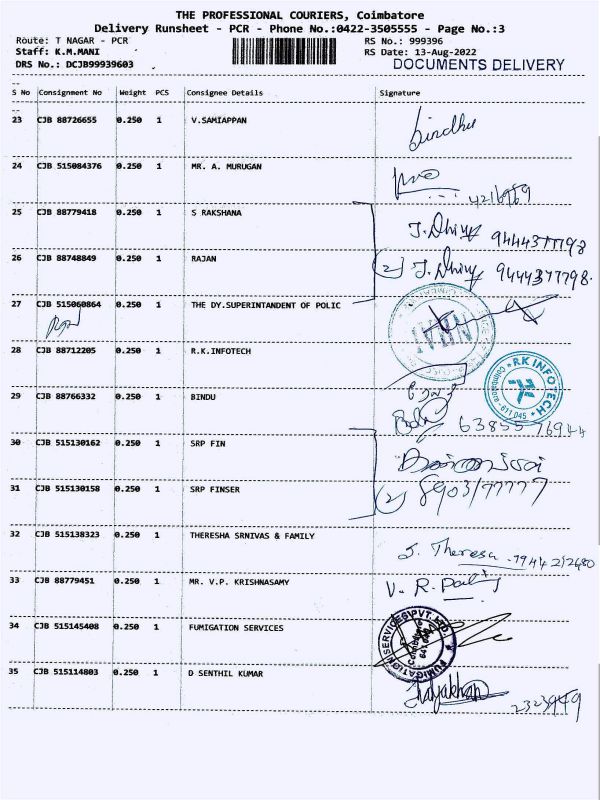 THE PROFESSIONAL COURIERS, Coimbatore
Delivery Runsheet - PCR - Phone No.:0422-3505555 - Page No.:3
Route: T NAGAR - PCR RS No.: 999396
Staff: K.M.MANI RS Date: 13-Aug-2022
DRS No.: DCJB99939603 DOCUMENTS DELIVERY
S No Consignment No Weight PCS Consignee Details Signature
23 CJB 88726655 0.250 1 V.SAMIAPPAN Bindhu
24 CJB 515084376 0.250 1 MR. A. MURUGAN
25 CJB 88779418 0.250 1 S RAKSHANA 9444377798
26 CJB 88748849 0.250 1 RAJAN (2) 9444377798.
27 CJB 515060864 0.250 1 THE DY.SUPERINTANDENT OF POLIC
28 CJB 88712205 0.250 1 R.K.INFOTECH
RK INFOTECH
Coimbatore - 611 045
29 CJB 88766332 0.250 1 BINDU 63855 76944
30 CJB 515130162 0.250 1 SRP FIN
31 CJB 515130158 0.250 1 SRP FINSER (2)
32 CJB 515138323 0.250 1 THERESHA SRNIVAS & FAMILY
J. Theresa
33 CJB 88779451 0.250 1 MR. V.P. KRISHNASAMY V. R.
34 CJB 515145408 0.250 1 FUMIGATION SERVICES
FUMIGATION SERVICES PVT. LTD.
Coimbatore
35 CJB 515114803 0.250 1 D SENTHIL KUMAR
2323949